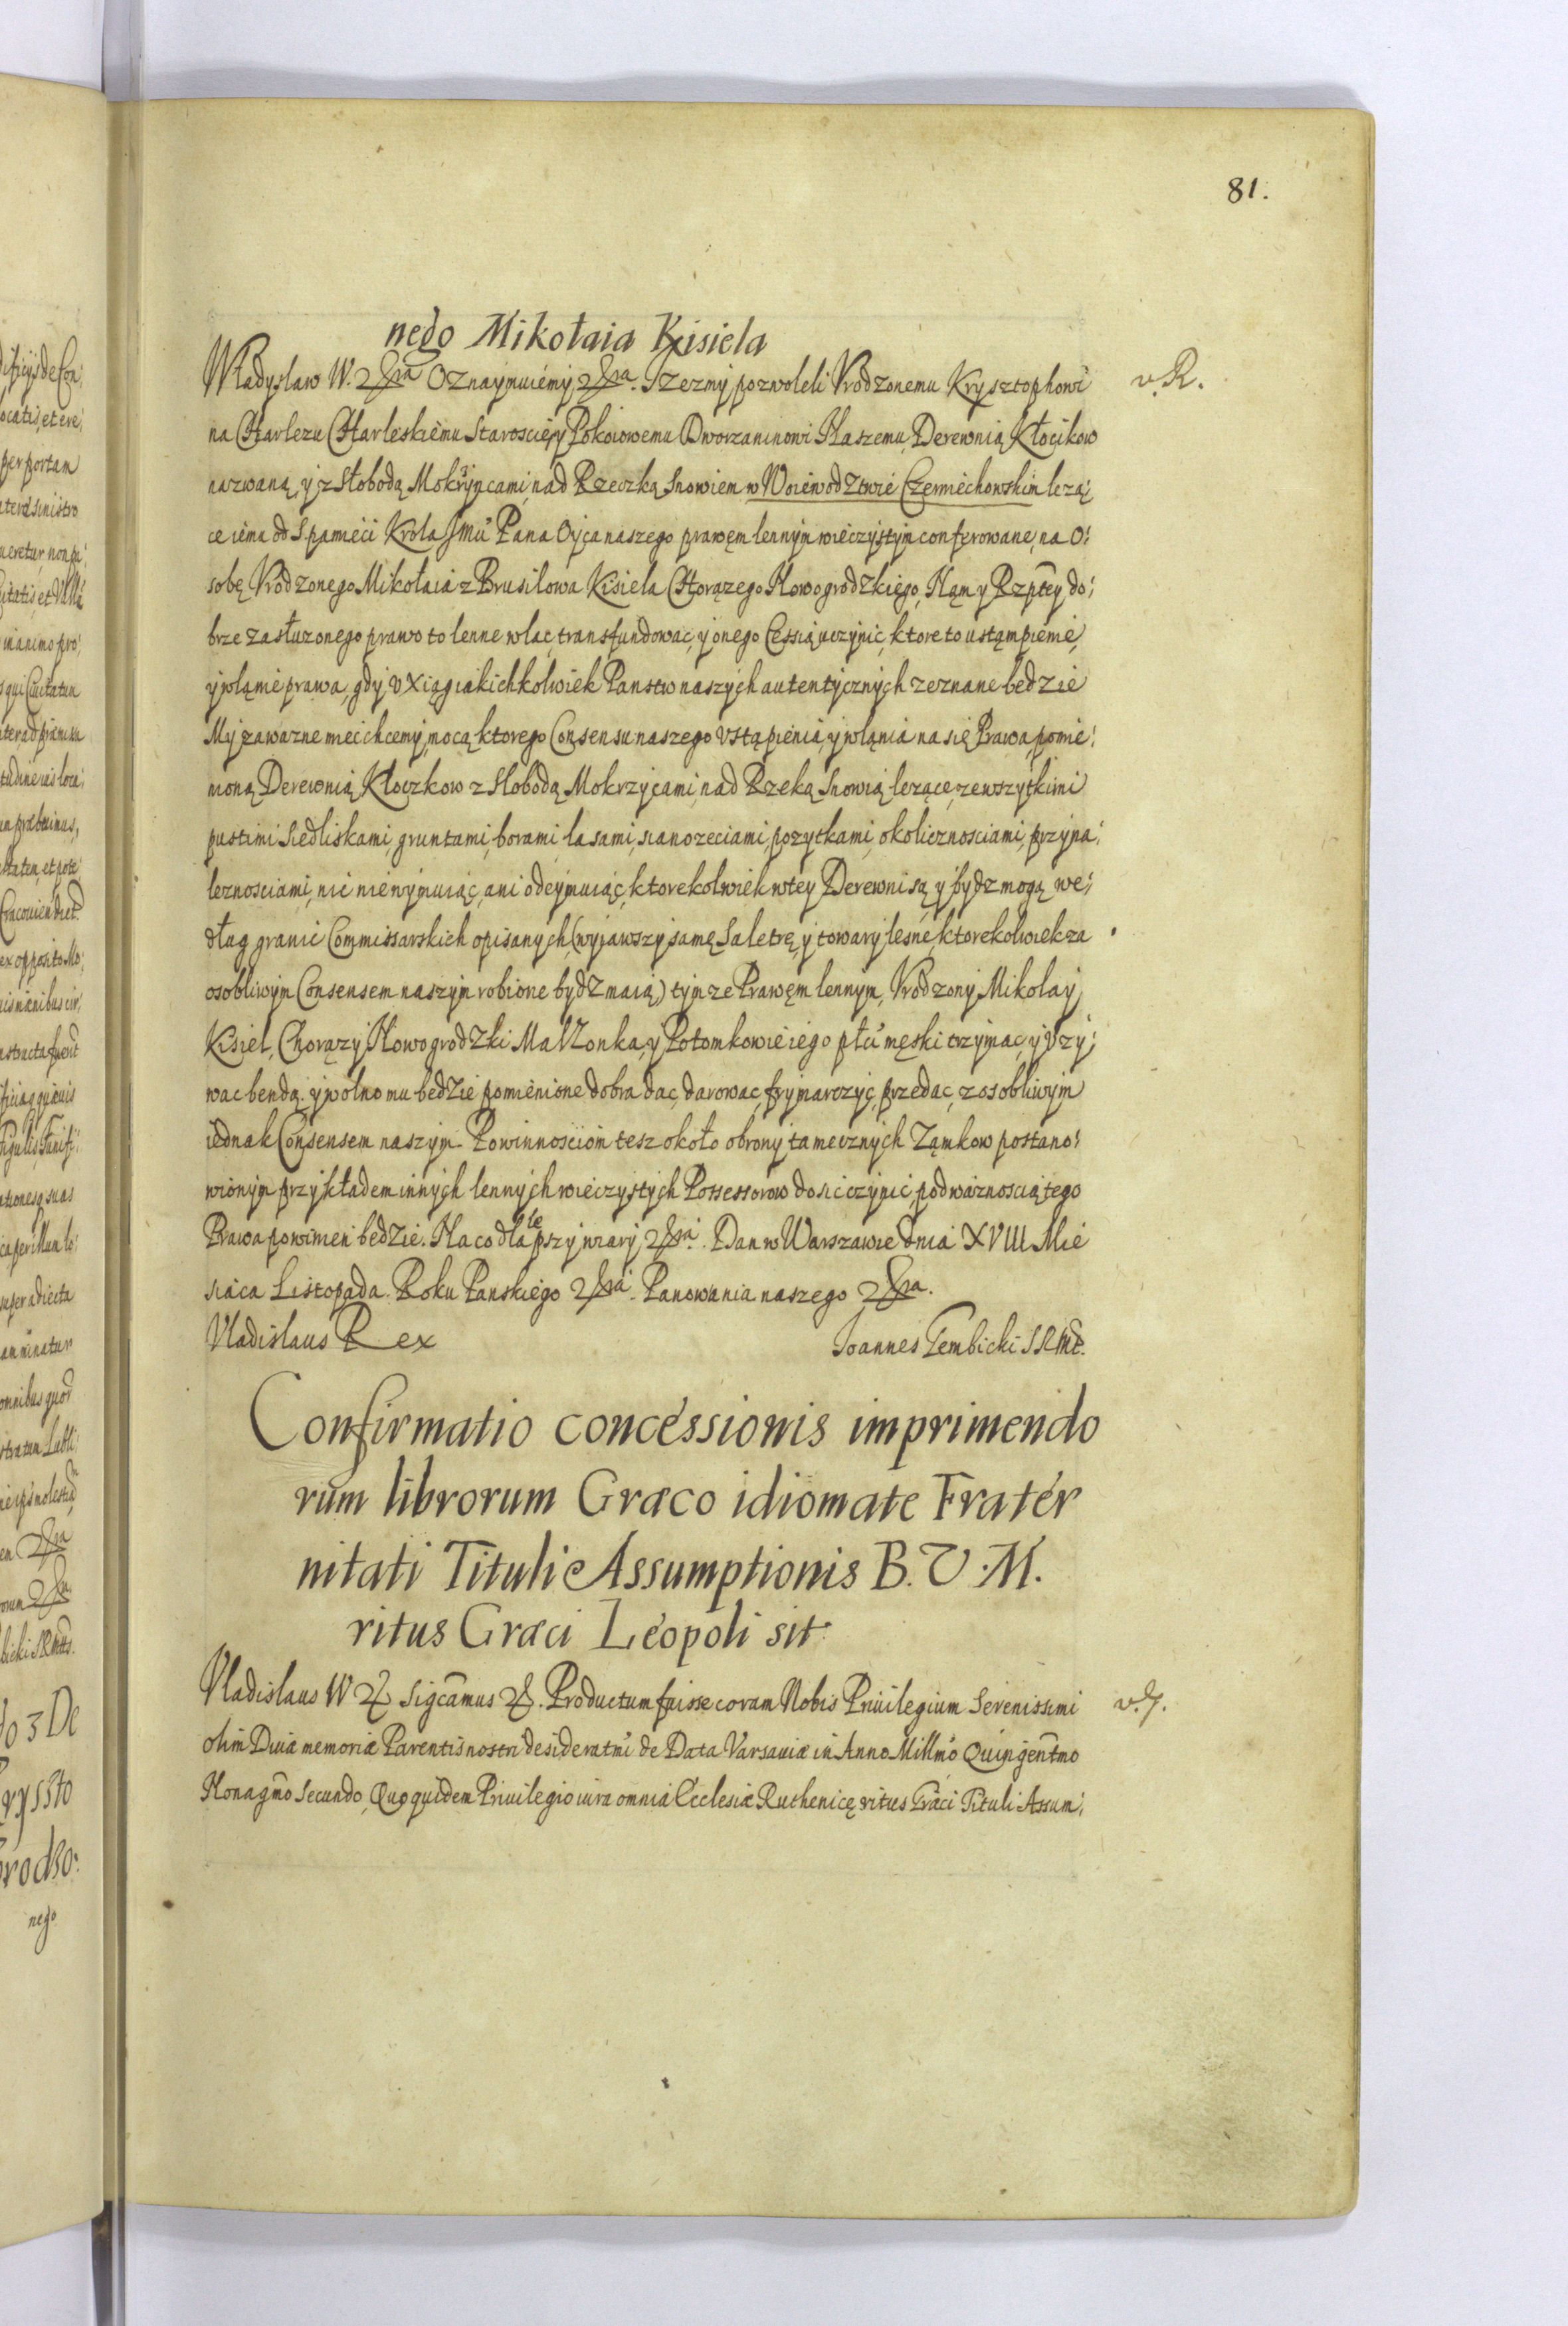 81.
nego Mikołaia Kisiela
Władysław W. &ra Oznaymuiemy &ra. Iżezmy pozwoleli Vrodzonemu Krysztophowi
v. R.
na Charlezu Charleskiemu Staroscie, y Pokoiowemu Dworzaninowi Naszemu, Derewnią Kłocikow
nazwaną, y z Słobodą Mokrzycami, nad Rzeczką Snowiem w Woiewodztwie Czerniechowskim lezą:
ce iemu od S pamieci Krola Jmu Pana Oyca naszego prawem lennym wieczystym conferowane, na O:
sobę Vrodzonego Mikołaia z Brusilowa Kisiela Chorązego Nowogrodzkiego, Nąm y Rzptey do:
brze zasłuzonego prawo to lenne wlac, transfundowac, y onego Cessią uczynic, ktore to ustąmpienie,
y wląnie prawa, gdy v Xiąg iakichkolwiek Panstw naszych autentycznych zeznane bedzie
My zawazne miec chcemy, mocą ktorego Consensu naszego vstąpienia, y wlania na się Prawa, pomie:
nioną Derewnią Kłoczkow z Słobodą Mokrzycami, nad Rzeką Snowią lezące, ze wszytkimi
pustimi siedliskami, gruntami, borami, lasami, sianozeciami, pozytkami, okolicznosciami, przyna:
leznosciami, nic nie wymuiąc, ani odeymuiąc, ktorekolwiek w tey Derewni są y bydz mogą we:
dług granic Commissarskich opisanych, (wyjawszy samę Saletrę, y towary lesne, ktorekolwiek za
osobliwym Consensem naszym robione bydz maią,) tym ze Prawem lennym, Vrodzony Mikolay
Kisiel, Chorązy Nowogrodzki Malzonka, y Potomkowie iego płci męski trzymac, y vzy:
wac bendą. y wolno mu bedzie pomienione dobra dac, darowac, frymarczyc, przedac, z osobliwym
iednak Consensem naszym. Powinnosciom tesz około obrony tamecznych Ząmkow postano:
wionym przykładem innych lennych wieczystych Possessorow dosic czynic pod waznoscią tego
Prawa powinien bedzie. Na co dla lepszy wiary &ra. Dan w Warszawie dnia XVIII Mie
siąca Listopada. Roku Panskiego &ra. Panowania naszego &ra.
Vladislaus Rex
Ioannes Gembicki SRMt.
Confirmatio concessionis imprimendo
rum librorum Græco idiomate Frater
nitati Tituli Assumptionis B. V. M.
ritus Græci Leopoli sit
Vladislaus W & Sigcamus &. Productum fuisse coram Nobis Priuilegium Serenissimi
v. 7.
olim Diuæ memoriæ Parentis nostri desideratmi de Data Varsauiæ in Anno Millmo Quingentmo
Nonagmo Secundo, Quo quidem Priuilegio iura omnia Ecclesiæ Ruthenicę ritus Græci Tituli Assum: